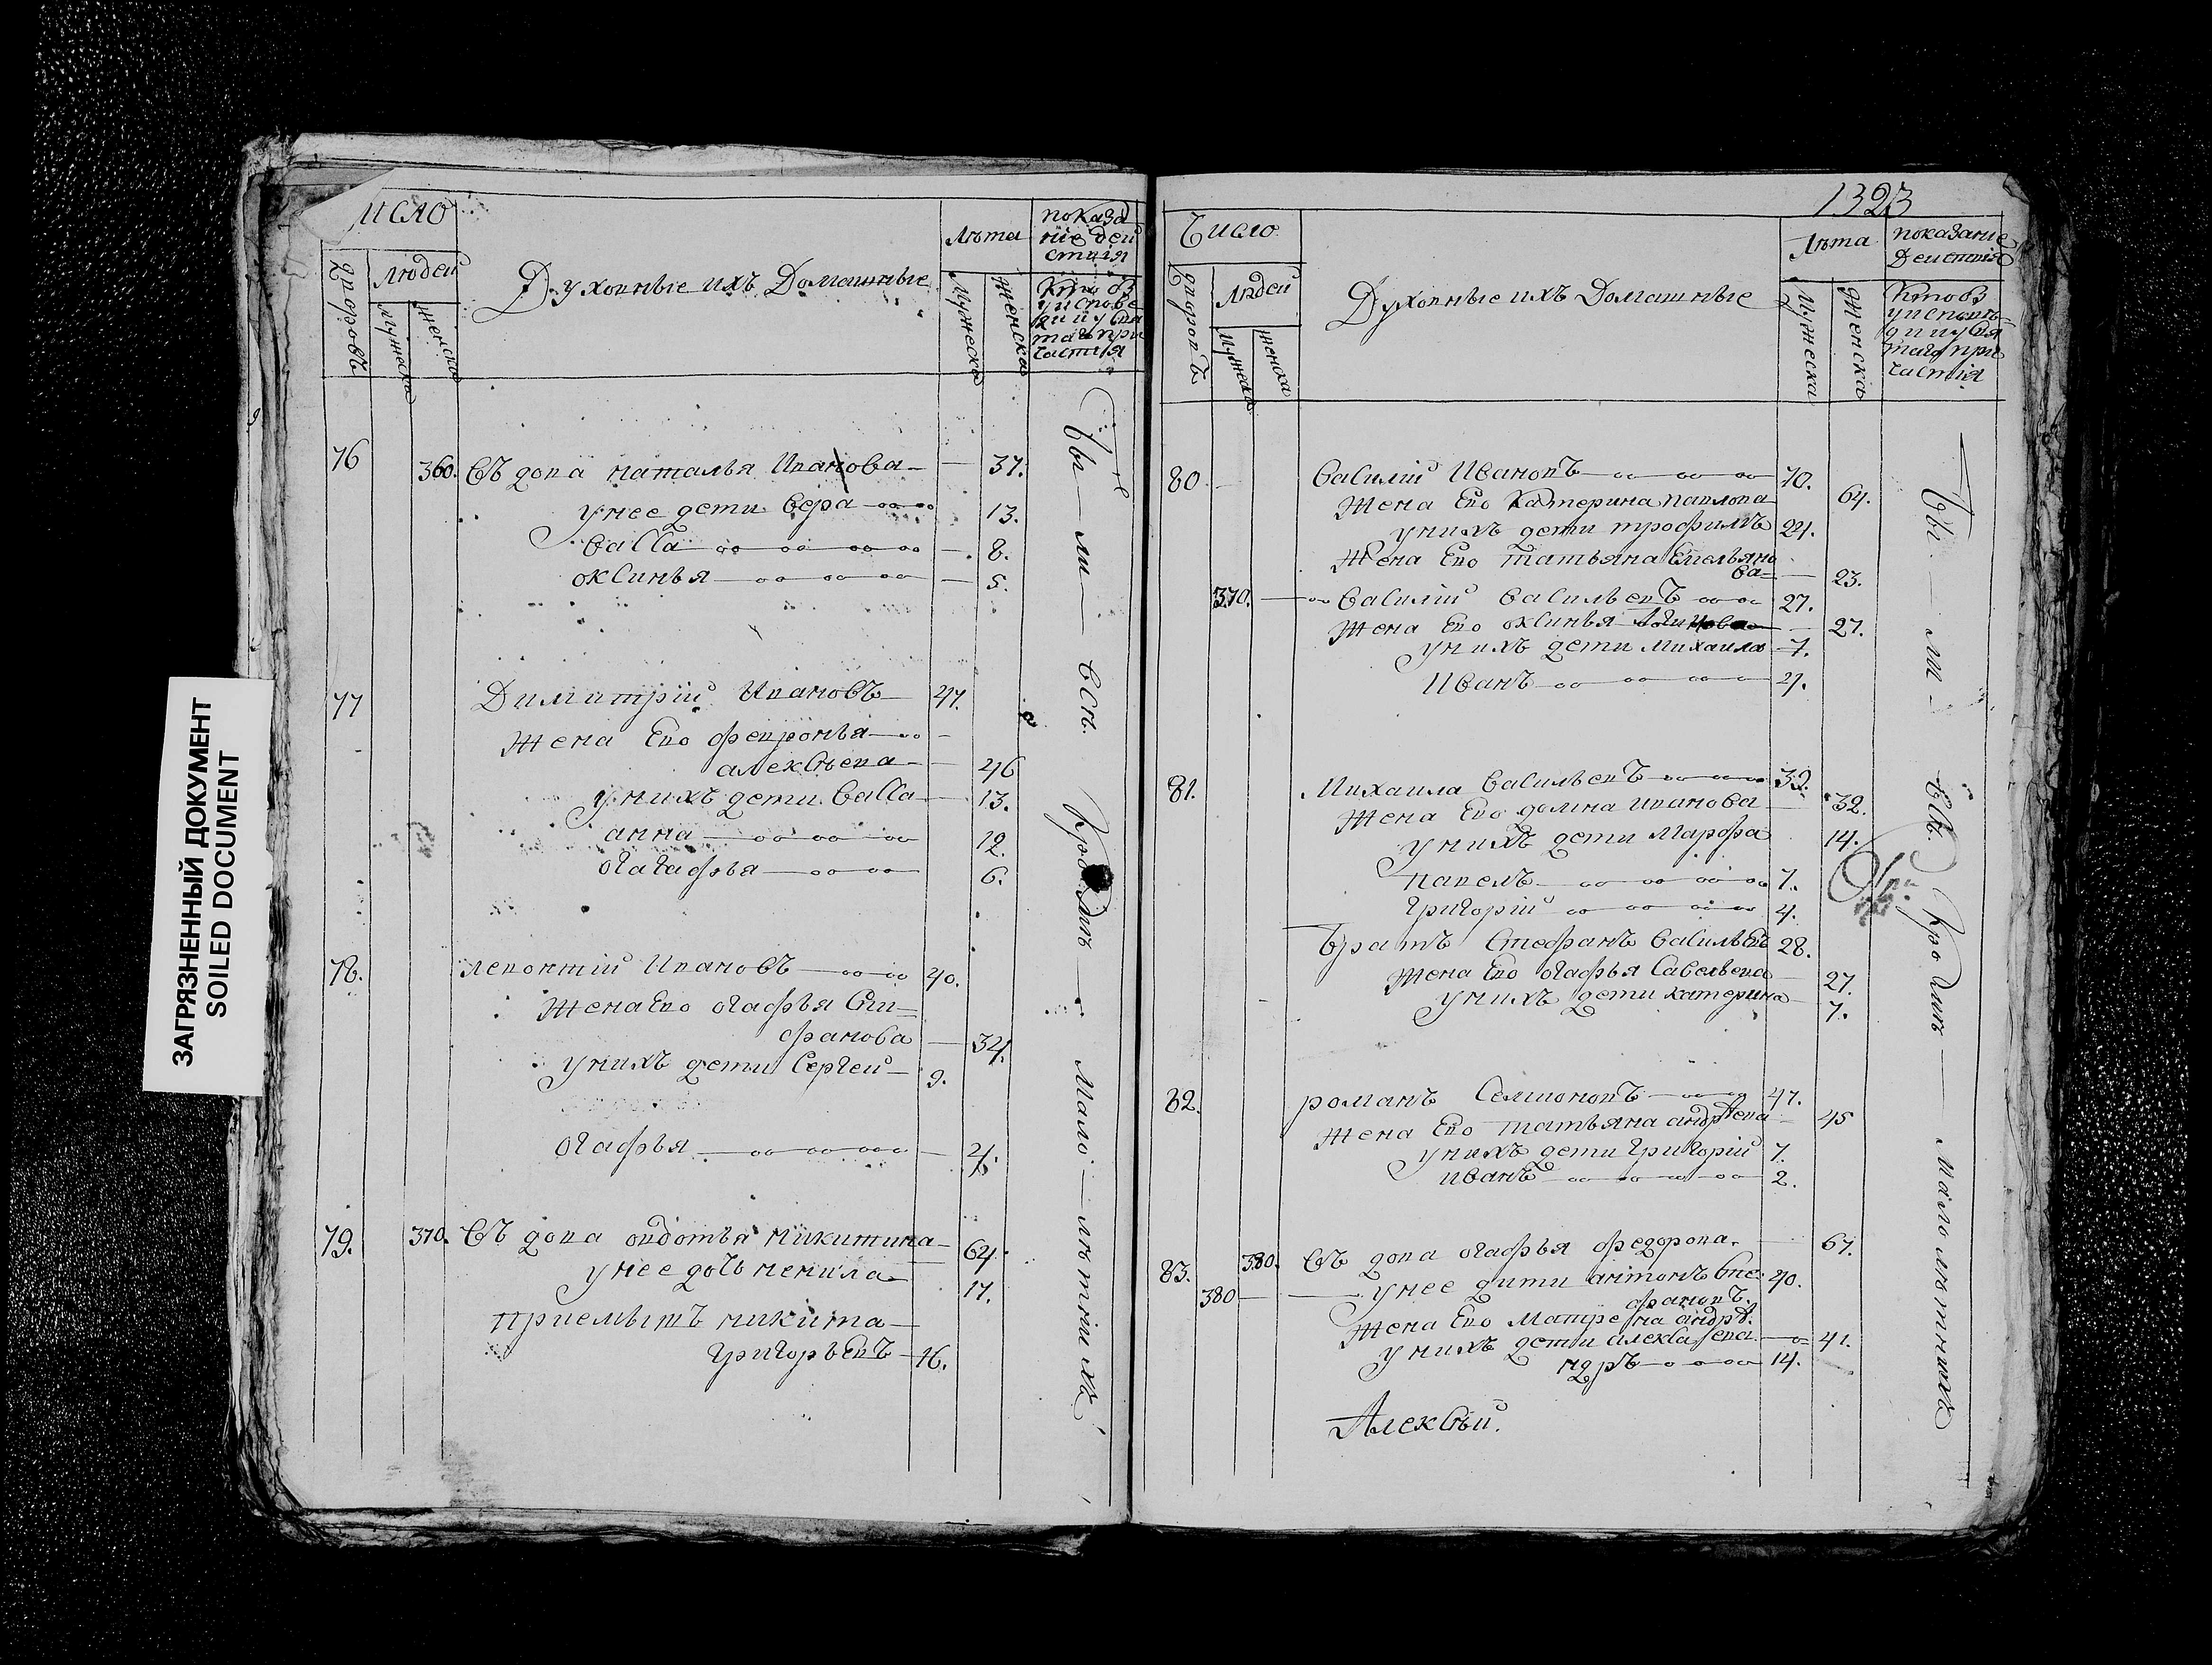 ЗАГРЯЗНЕННЫЙ ДОКУМЕНТ
SOILED DOCUMENT
исло
людей
дворовъ
мужеска
женска
Духовные ихъ Домашные
лѣта
мужеска
женска
показа
ние деи
ствия
Кто бз
у испове
ди и у свя
таго при
частия
76 360. Въдова наталья Иванова 37.
унее дети вера 13.
васса 8.
оксинья 5.
77 Димитрий Ивановъ 47.
Жена Ево февронья
алексѣева 46
унихъ дети васса 13.
анна 12.
огафья 6.
78. леонтий Ивановъ 40.
Жена Ево огафья Сти=
фанова 34.
унихъ дети Сергеи 9.
огафья 4.
79. 370. Въдова овдотья микитина 64.
унее дочь ненила 17.
приемышъ никита
григорьевъ 16.
Были всѣ Кромѣ малолѣтнихъ
1323
Число
людей
дворовъ
мужеска
женска
Духовные ихъ Домашные
лѣта
мужеска
женска
показание
деиствия
Кто бз
у исповѣ=
ди и у свя
таго при
частия
80. василий Ивановъ 70.
Жена Ево Катерина павлова 64.
унихъ дети трофимъ 24.
Жена Ево татьяна Емельяно
ва= 23.
370. василий васильевъ 27.
Жена Ево оксинья 27.
унихъ дети михаила 7.
Иванъ 4.
81. Михаила васильевъ 32.
Жена Ево домна иванова 32.
унихъ дети Марфа 14.
павелъ 7.
григорий 4.
Братъ Стефанъ васильевъ 28.
Жена Ево огафья Савельева 27.
унихъ дети катерина 7.
82. романъ Семионовъ 47.
Жена Ево татьяна андрѣева 45
унихъ дети григорий 7.
иванъ 2.
83. 380. Въдова огафья федорова 67.
380 унее дити антонъ Сте 40.
фановъ.
Жена Ево Матрена андрѣ
ева 41.
унихъ дети алекса
ндръ 14.
Алексѣй.
Были всѣ Кромѣ малолѣтнихъ